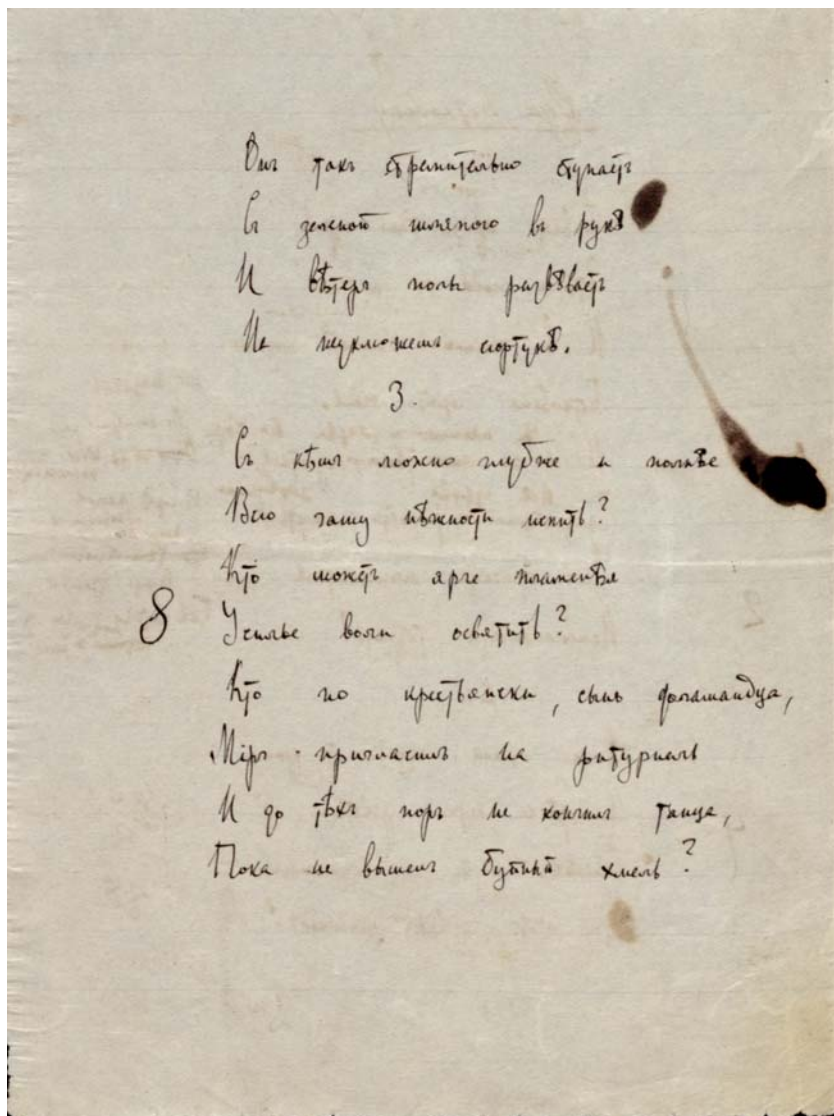 Онъ такъ стремительно ступаетъ
Съ зеленой шляпою въ рукѣ
И вѣтеръ полы развѣваетъ
На неуклюжемъ сюртукѣ.
3.
Съ кѣмъ можно глубже и полнѣе
Всю чашу нѣжности испить?
Кто можетъ ярче пламенѣя
8 Усилье воли освятить?
Кто по крестьянски, сынъ фламандца,
Міръ пригласилъ на ритурнель
И до тѣхъ поръ не кончилъ танца,
Пока не вышелъ буйный хмель?